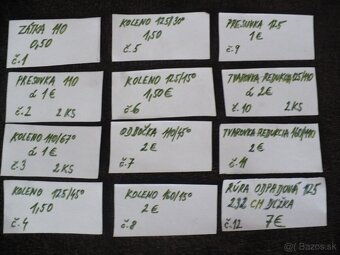 ZÁTKA 110
0,50
č.1
PRESUVKA 110
á 1€
č.2 2 KS
KOLENO 110/67°
á 1€
č.3 2 KS
KOLENO 125/45°
1,50
č.4
KOLENO 125/30°
1,50
č.5
KOLENO 125/15°
1,50€
č.6
ODBOČKA 110/45°
2€
č.7
KOLENO 160/15°
2€
č.8
PRESUVKA 125
1€
č.9
TVAROVKA REDUKCIA 125/110
á 2€
č.10 2 KS
TVAROVKA REDUKCIA 160/110
2€
č.11
RÚRA ODPADOVÁ 125
232 CM DĹŽKA
č.12 7€
sk.bazar.sk